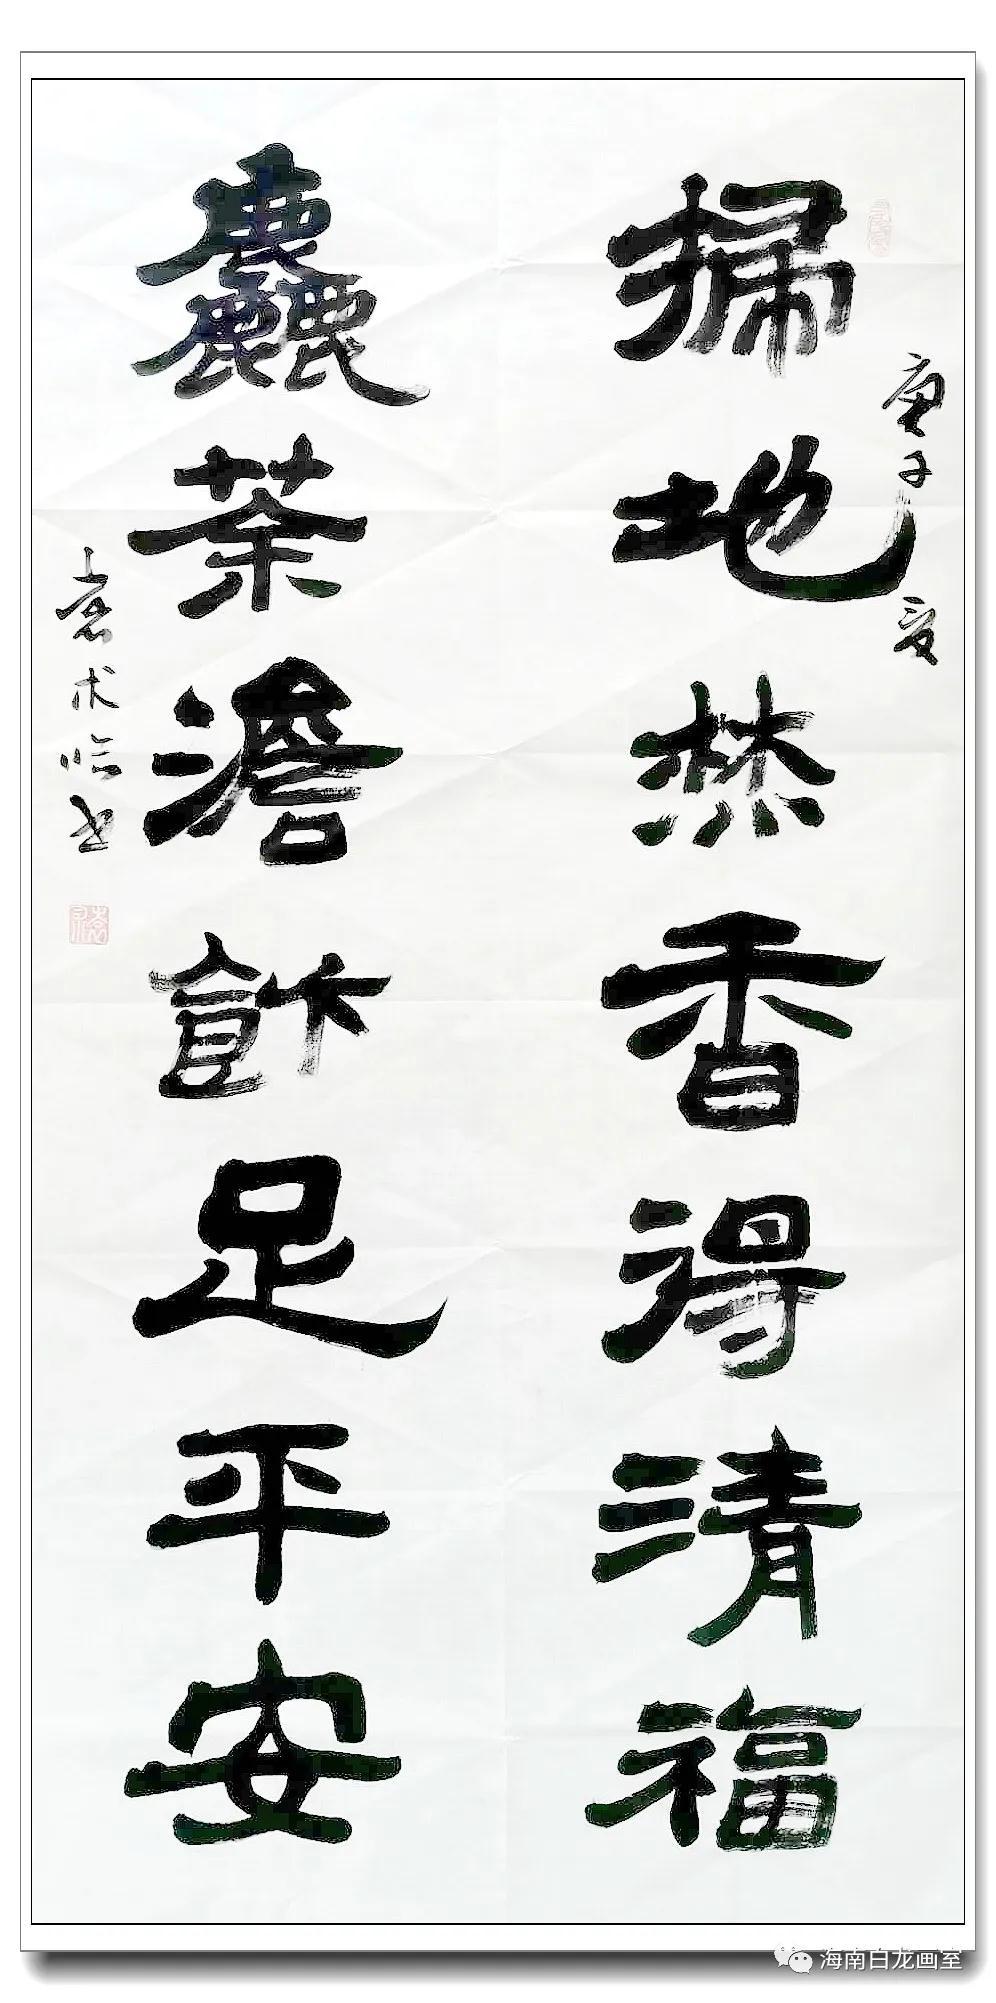 掃地焚香得清福
麤茶澹飰足平安
庚子夏
袁术临书
海南白龙画室